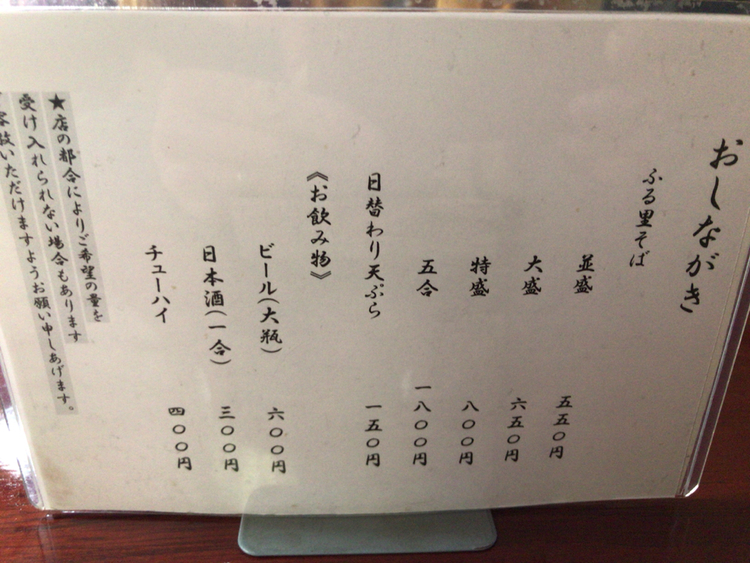 おしながき
ふる里そば
並盛 五五〇円
大盛 六五〇円
特盛 八〇〇円
五合 一八〇〇円
日替わり天ぷら 一五〇円
《お飲み物》
ビール(大瓶) 六〇〇円
日本酒(一合) 三〇〇円
チューハイ 四〇〇円
★店の都合によりご希望の量を
受け入れられない場合もあります
容赦いただけますようお願い申しあげます。